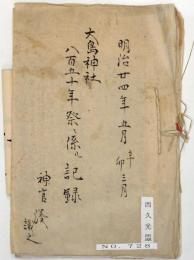 明治廿四年五月 辛卯三月
大島神社
八百五十年祭ニ係ル記録
神官
西久光
NO. 728